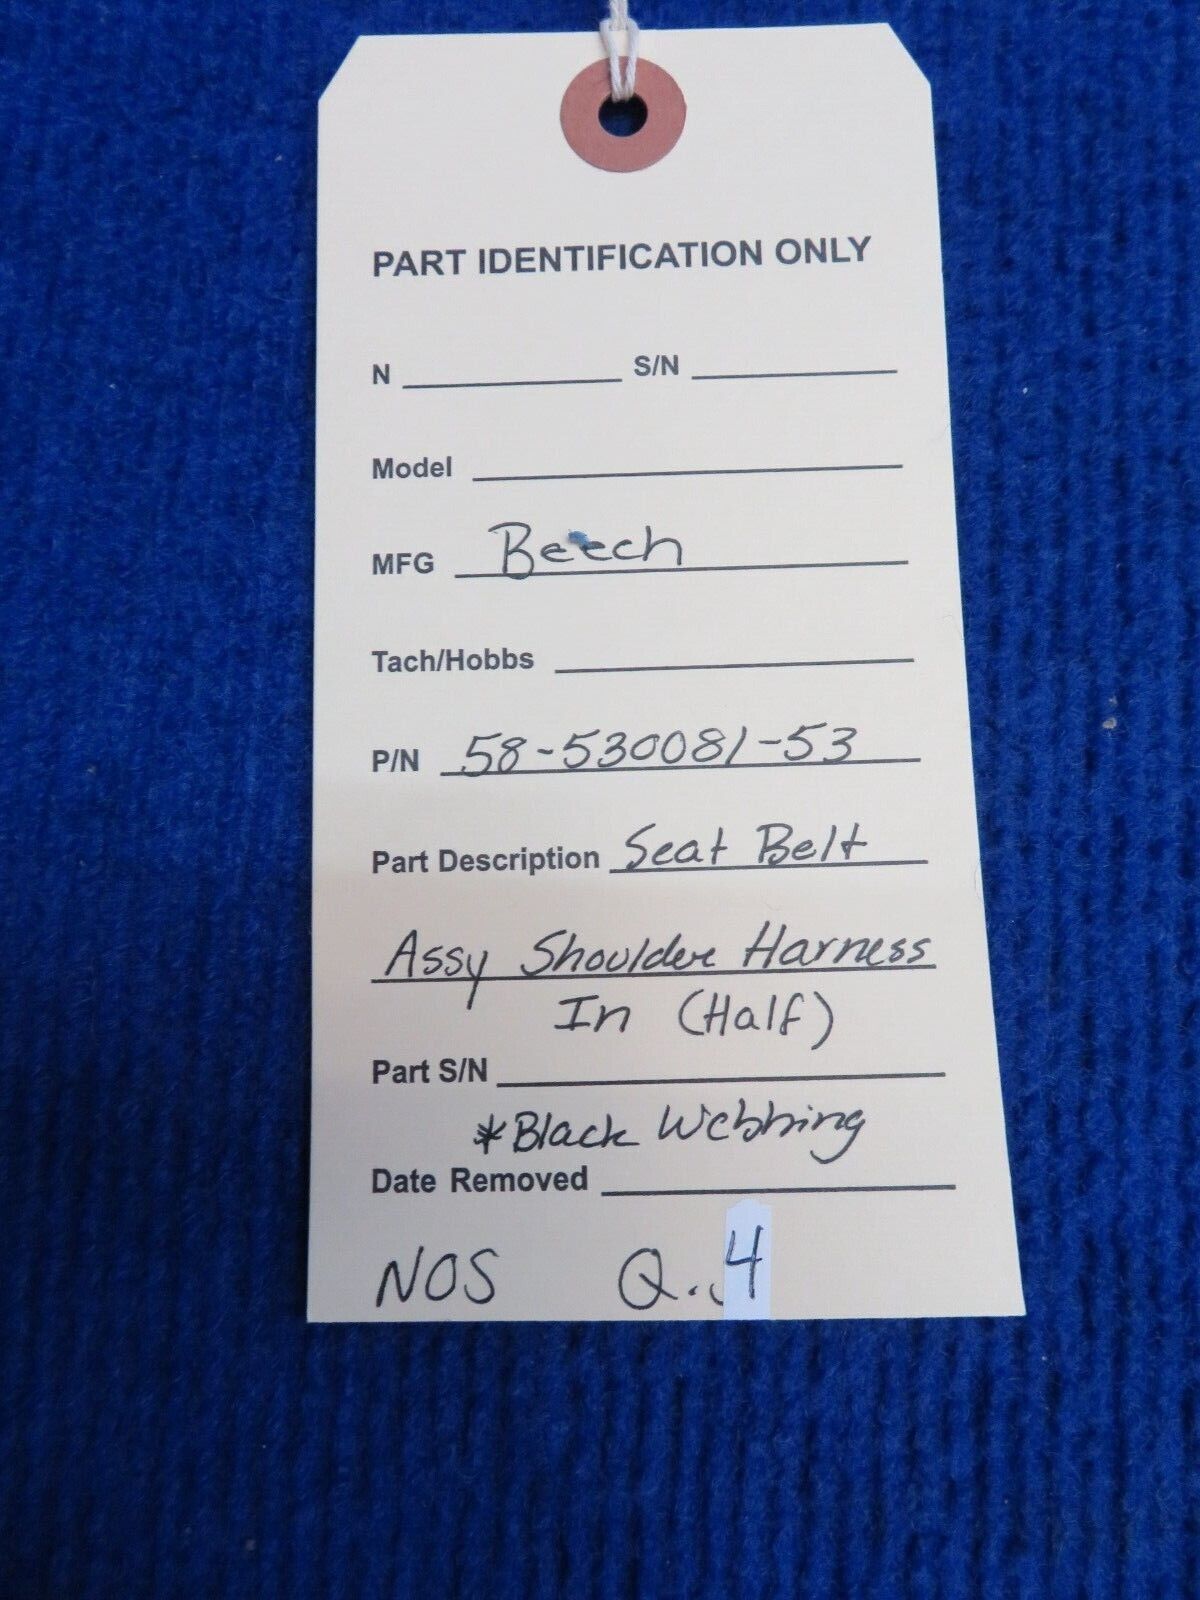 PART IDENTIFICATION ONLY
N S/N
Model
MFG Beech
Tach/Hobbs
P/N 58-530081-53
Part Description Seat Belt
Assy Shoulder Harness
In (Half)
Part S/N
*Black Webbing
Date Removed
NOS Q. 4